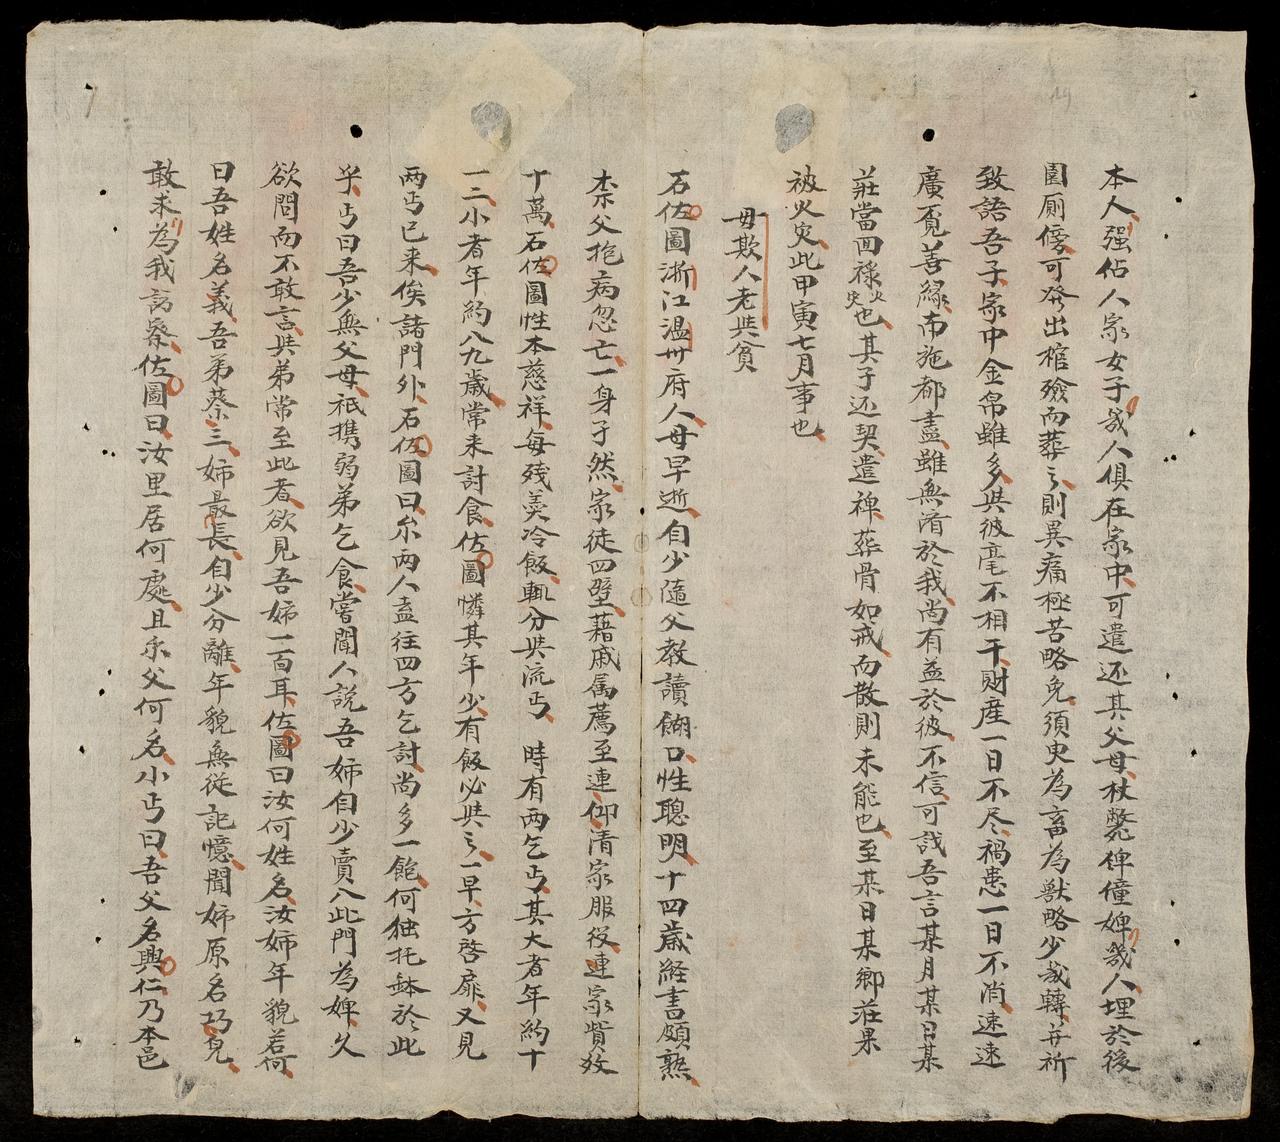 本人强佔人家女子幾人俱在家中可遣还其父母杖斃俾僮婢幾人埋於後
園厠傍可発出棺殮而葬之則異痛極苦略免須臾為畜為獸略少裁轉并祈
致語吾子家中金帛雖多與彼毫不相干財産一日不尽禍患一日不消速速
廣覓善緣而施都盡雖無済於我尚有益於彼不信可哉吾言某月某日某
莊當回祿火灾也其子还契遣裨葬骨如戒而散則未能也至某日某鄉庄果
被火灾此甲寅七月事也
毋欺人老與貧
石佐圖浙江温州府人母早逝自少隨父教讀餬口性聰明十四歳経書頗熟
柰父抱病忽亡一身孑然家徒四壁藉戚属薦至連仰清家服役連家貲敌
十萬石佐圖性本慈祥每残羮冷飯輒分與流丐時有两乞丐其大者年約十
一二小者年約八九歳常来討食佐圖憐其年少有飯必與之一早方啓扉又見
两丐已来俟諸門外石佐圖曰尔两人盍往四方乞討尚多一飽何独托鉢於此
乎丐曰吾少無父母祇携弱弟乞食嘗聞人説吾姉自少賣入此門為婢久
欲問而不敢言與弟常至此者欲見吾姉一面耳佐圖曰汝何姓名汝姉年貌若何
曰吾姓名義吾弟蔡三姉最長自少分離年貌無従記憶聞姉原名巧兒
敢求為我訪察佐圖曰汝里居何處且尔父何名小丐曰吾父名興仁乃本邑